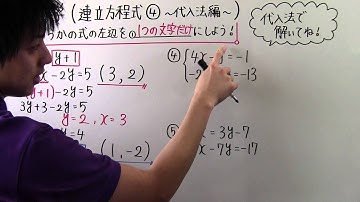 (連立方程式④ ~代入法編~)
らかの式の左辺を
1つの文字だけにしよう!
代入法で
解いてね!
y+1
-2y=5
(3, 2)
+1)-2y=5
3y+3-2y=5
y=2, x=3
y=4
(1, -2)
④
4x
=-1
-2
=-13
⑤
=3y-7
x-7y=-17